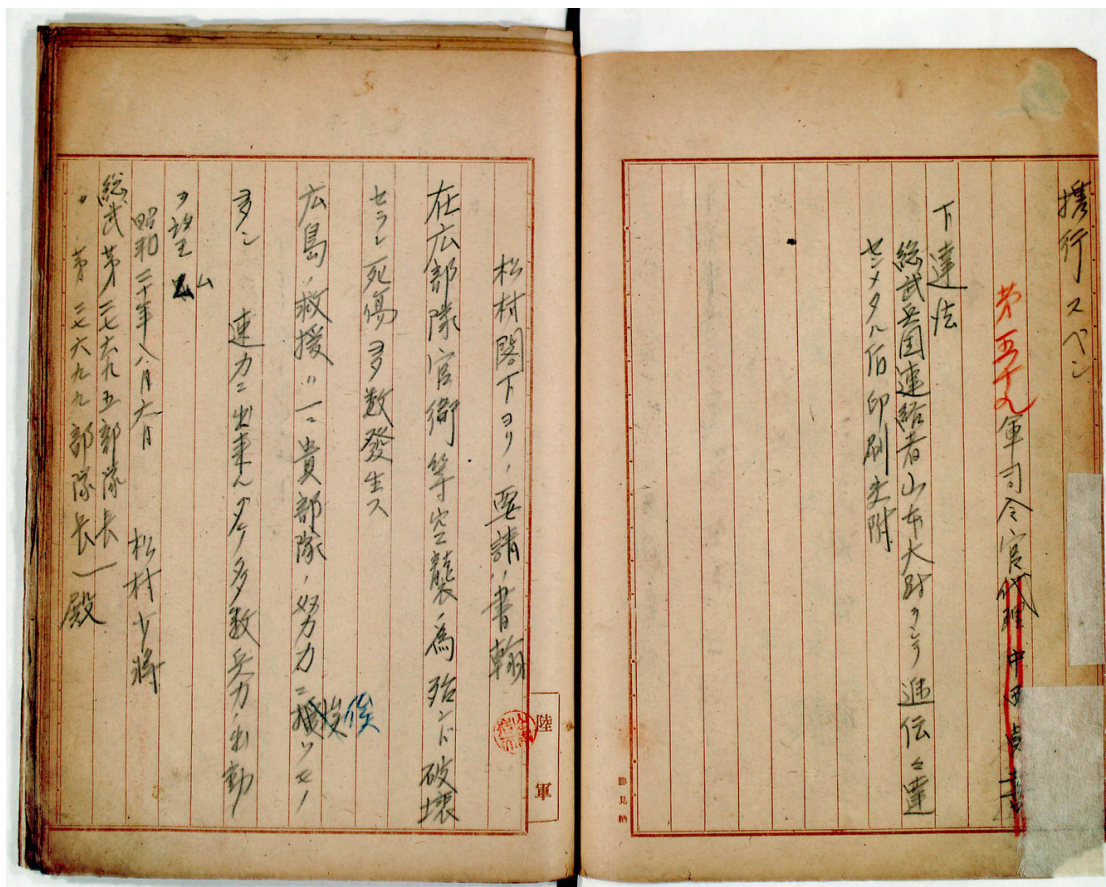 携行スベシ
第五十九軍司令官代理 中田
下達法
総武兵団連絡者山本大尉ヲシテ逓伝ニ達
セシメタル后印刷交附
勝見納
陸軍
松村閣下ヨリノ要請ノ書翰
在広部隊官衙等空襲ノ為殆ンド破壊
セラレ死傷多数發生ス
広島ノ救援ハ一ニ貴部隊ノ努力ニ俟ツモノ
多シ 速カニ出来ルダケ多数兵力ノ出動
ヲ望ム
昭和二十年八月六日 松村少将
総武第二七六九五部隊長
〃 第二七六九九部隊長 殿